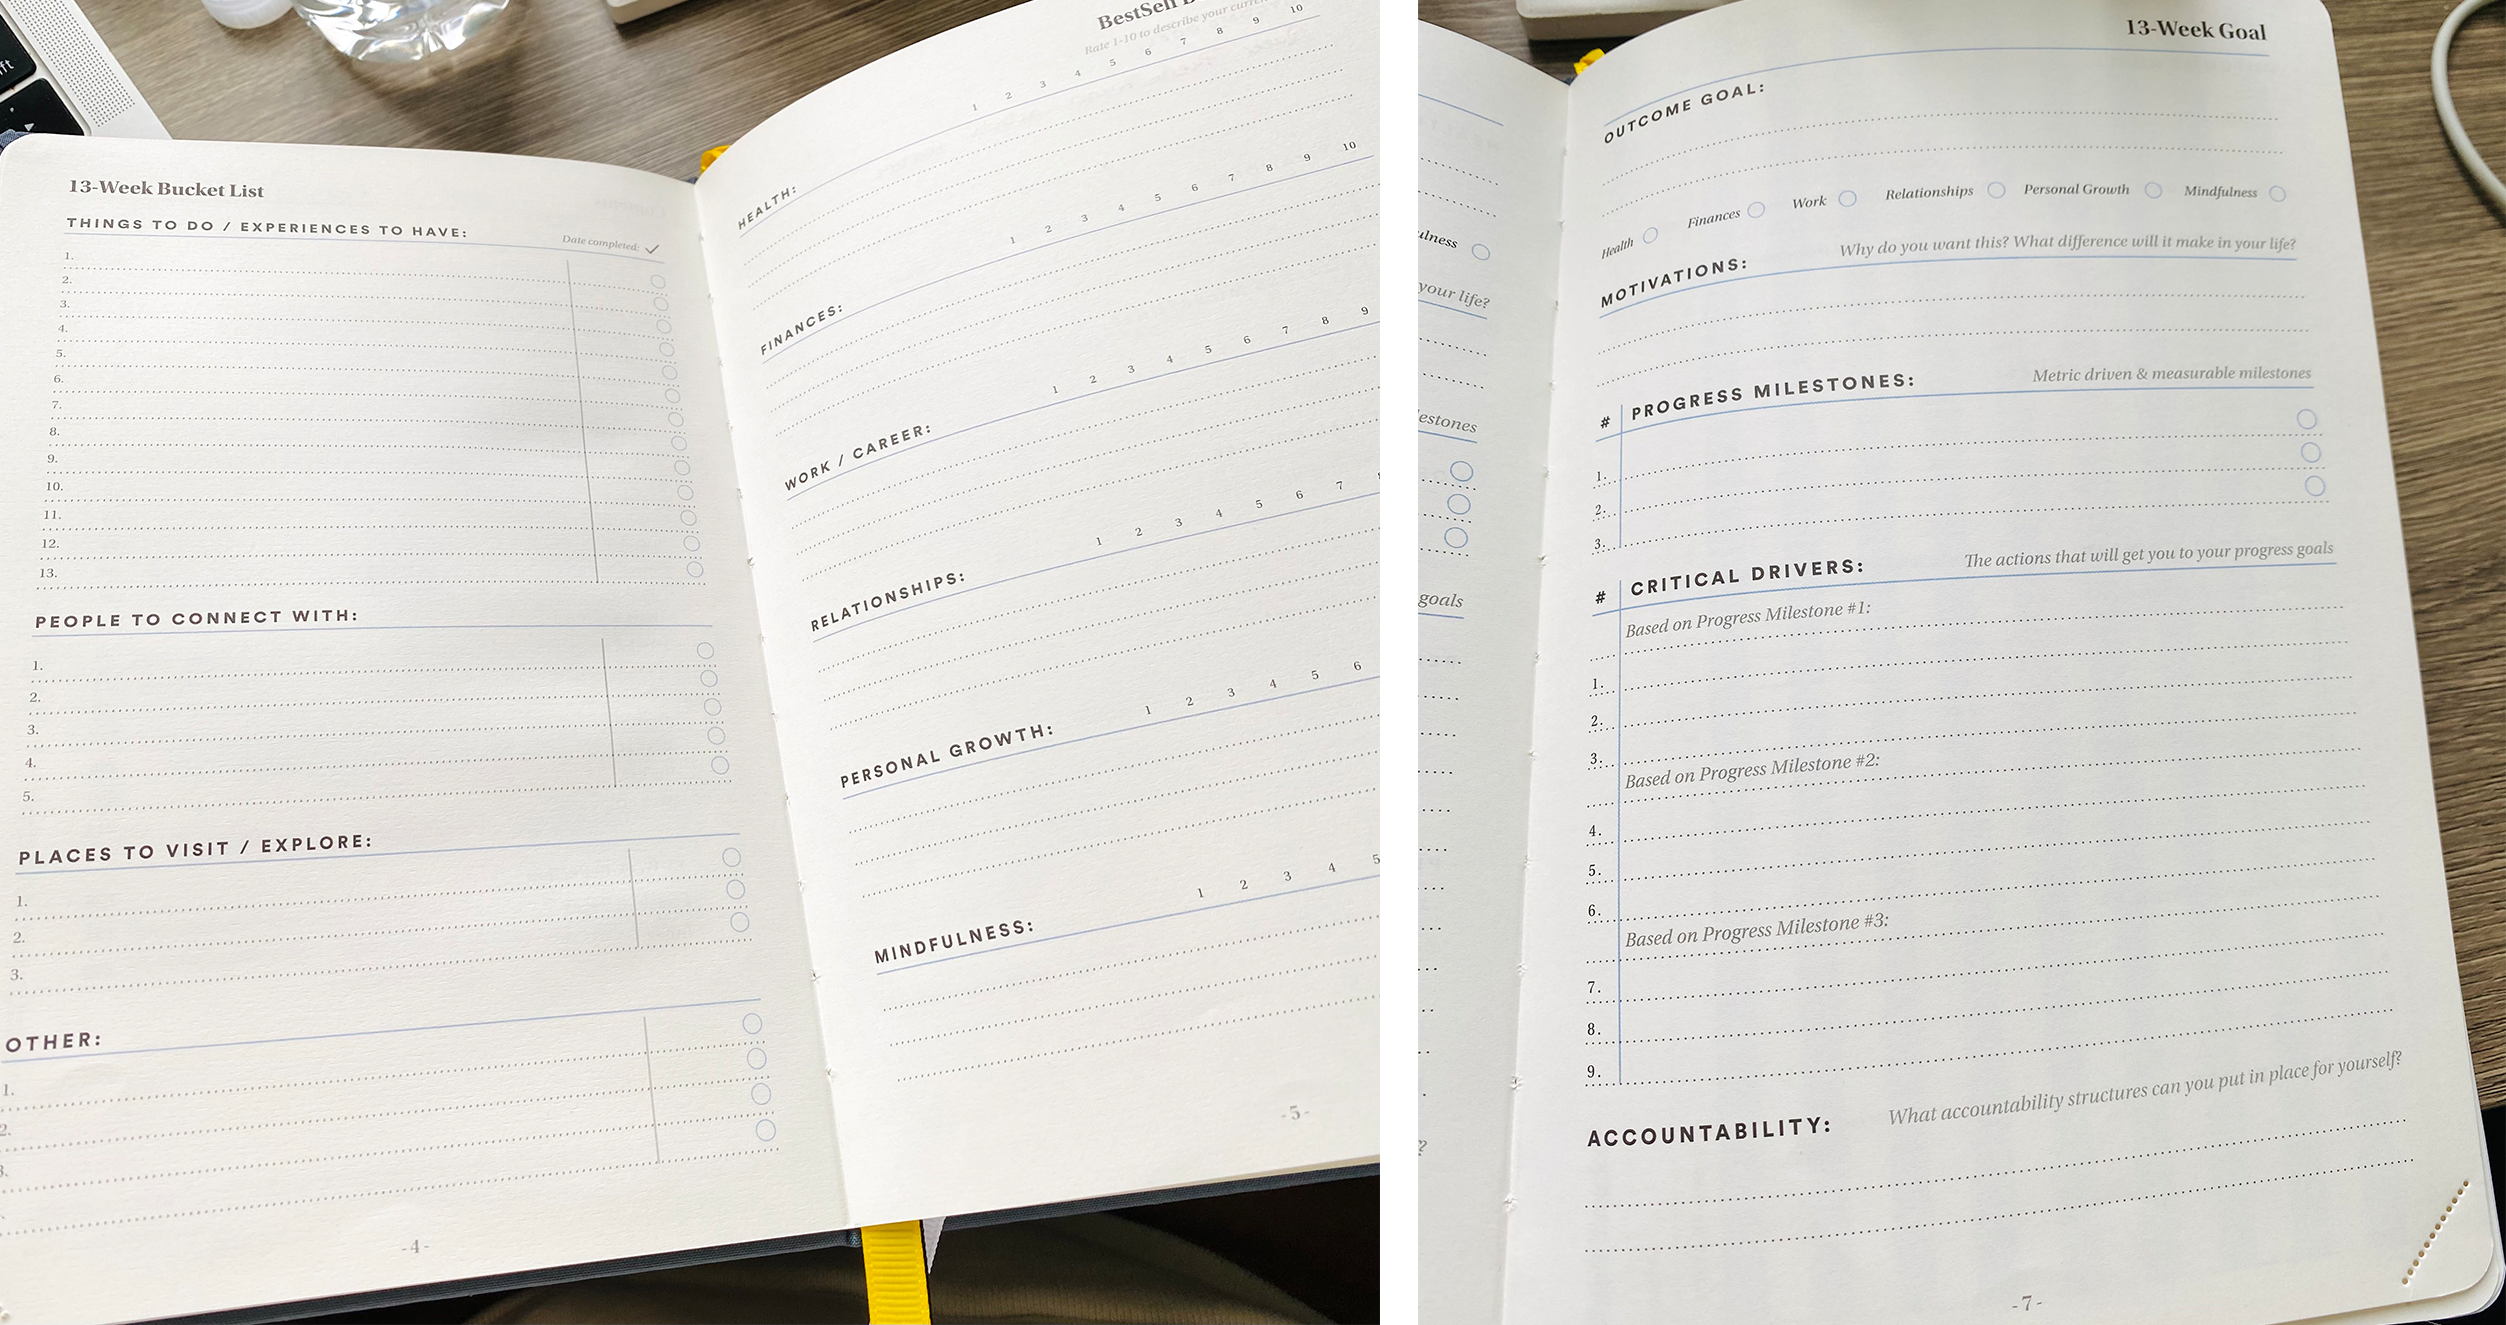 13-Week Bucket List
THINGS TO DO / EXPERIENCES TO HAVE:
Date completed:
1.
2.
3.
4.
5.
6.
7.
8.
9.
10.
11.
12.
13.
PEOPLE TO CONNECT WITH:
1.
2.
3.
4.
5.
PLACES TO VISIT / EXPLORE:
1.
2.
3.
OTHER:
1.
2.
3.
-4-
BestSelf
Rate 1-10 to describe your
HEALTH: 1 2 3 4 5 6 7 8 9 10
FINANCES: 1 2 3 4 5 6 7 8 9 10
WORK / CAREER: 1 2 3 4 5 6 7 8 9
RELATIONSHIPS: 1 2 3 4 5 6 7
PERSONAL GROWTH: 1 2 3 4 5 6
MINDFULNESS: 1 2 3 4 5
-5-
ulness
your life?
estones
goals
?
13-Week Goal
OUTCOME GOAL:
Health Finances Work Relationships Personal Growth Mindfulness
MOTIVATIONS: Why do you want this? What difference will it make in your life?
# PROGRESS MILESTONES: Metric driven & measurable milestones
1.
2.
3.
# CRITICAL DRIVERS: The actions that will get you to your progress goals
Based on Progress Milestone #1:
1.
2.
3.
Based on Progress Milestone #2:
4.
5.
6.
Based on Progress Milestone #3:
7.
8.
9.
ACCOUNTABILITY: What accountability structures can you put in place for yourself?
-7-